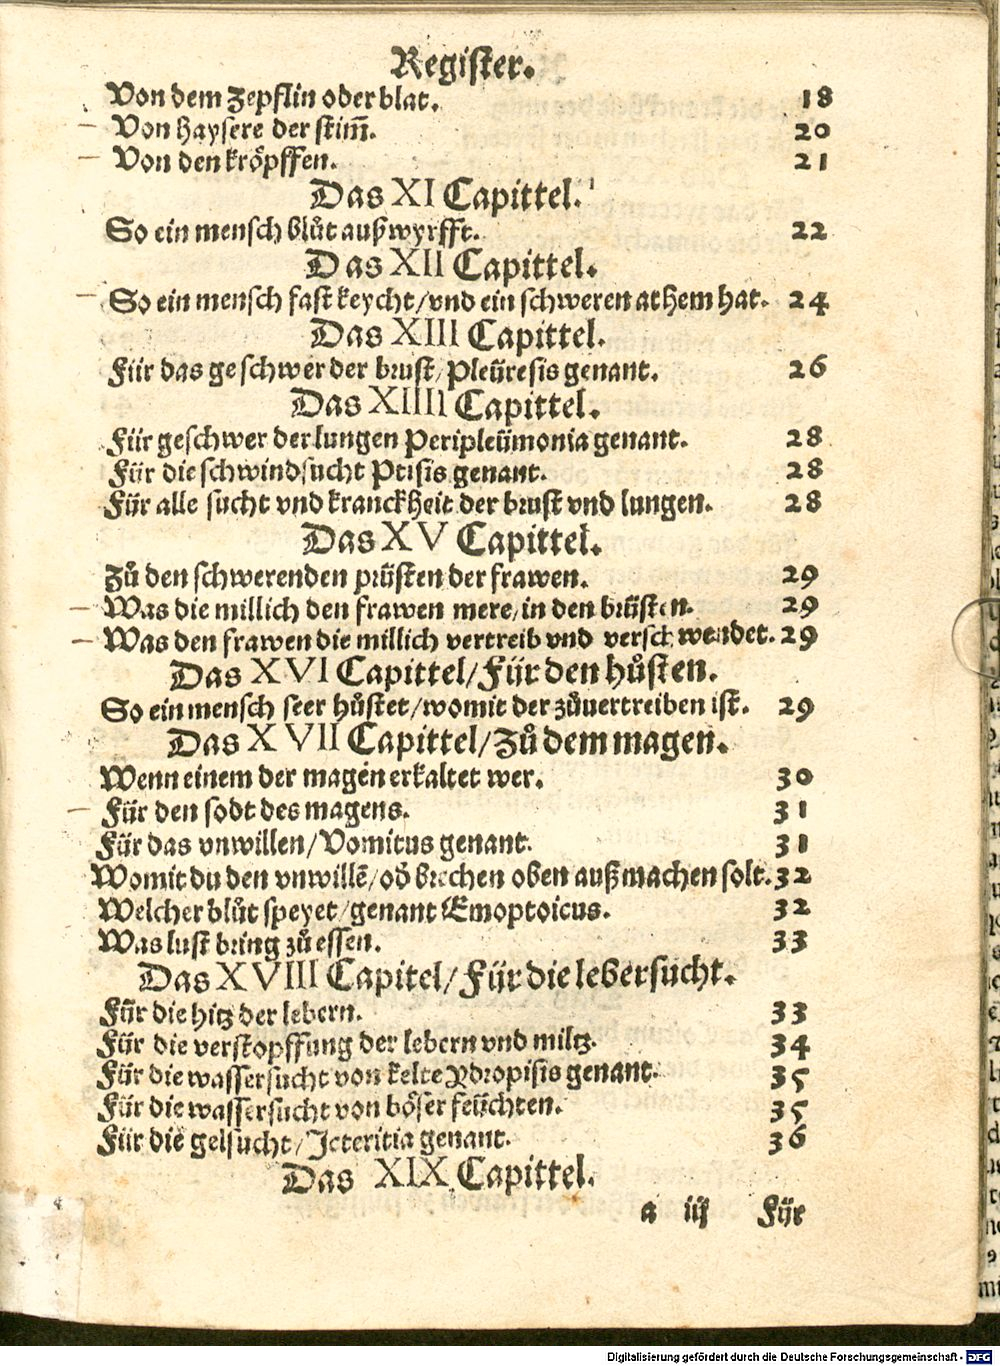 Register.
Von dem zepflin oder blat. 18
Von haysere der stim̃. 20
Von den kröpffen. 21
Das XI Capittel.
So ein mensch blůt außwyrfft. 22
Das XII Capittel.
So ein mensch fast keycht/vnd ein schweren athem hat. 24
Das XIII Capittel.
Für das geschwer der brust/Pleüresis genant. 26
Das XIIII Capittel.
Für geschwer der lungen Peripleümonia genant. 28
Für die schwindsucht Ptisis genant. 28
Für alle sucht vnd kranckheit der brust vnd lungen. 28
Das XV Capittel.
Zů den schwerenden prüsten der frawen. 29
Was die millich den frawen mere/in den brüsten. 29
Was den frawen die millich vertreib vnd verschwendet. 29
Das XVI Capittel/Für den hůsten.
So ein mensch seer hůstet/womit der zůuertreiben ist. 29
Das XVII Capittel/Zů dem magen.
Wenn einem der magen erkaltet wer. 30
Für den sodt des magens. 31
Für das vnwillen/Vomitus genant. 31
Womit du den vnwillē/oď brechen oben auß machen solt. 32
Welcher blůt speyet/genant Emoptoicus. 32
Was lust bring zů essen. 33
Das XVIII Capitel/Für die lebersucht.
Für die hitz der lebern. 33
Für die verstopffung der lebern vnd miltz. 34
Für die wassersucht von kelte Ydropisis genant. 35
Für die wassersucht von böser feüchten. 35
Für die gelsucht/Icteritia genant. 36
Das XIX Capittel.
a iij Für
Digitalisierung gefördert durch die Deutsche Forschungsgemeinschaft - DFG